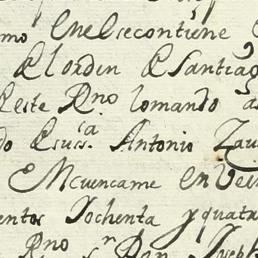 mo Enelsecontiene
El orden E Santiag
Eeste Rno lo mando a
do Esuss.ª Antonio Zau
Mcuencame en Vein
entos Yochenta yquatr
Rno Sr Dn Joseph